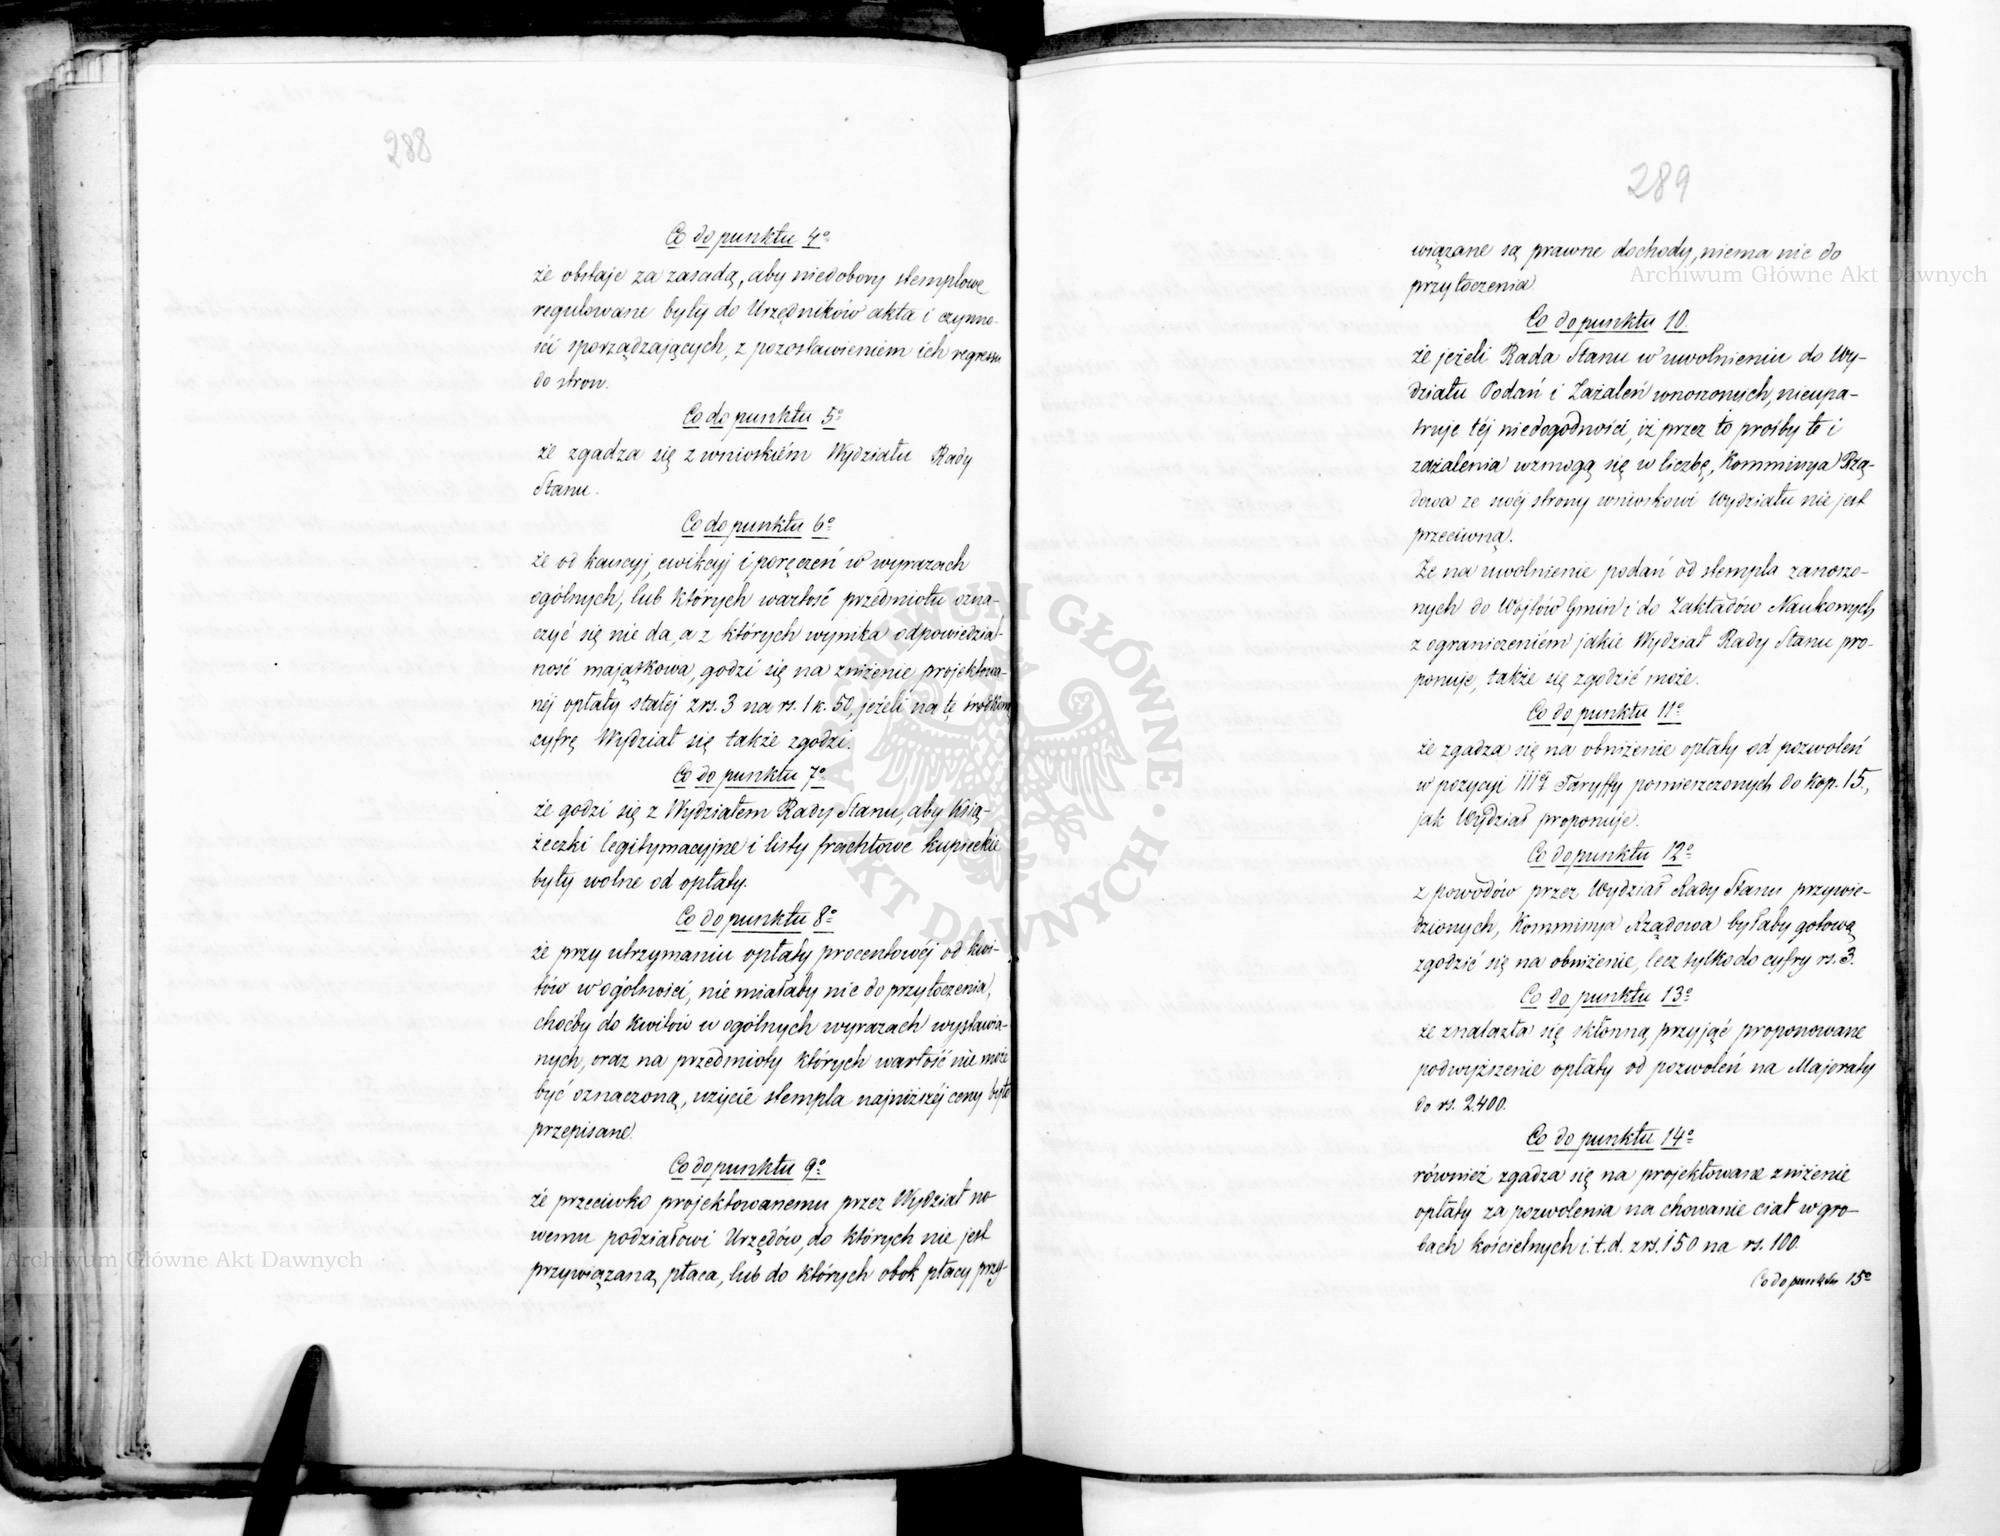 288
Co do punktu 4º
że obstaje za zasadą, aby niedobory stemplowe
regulowane były do Urzędników akta i czynno-
ści sporządzających, z pozostawieniem ich regressu
do stron.
Co do punktu 5º
że zgadza się z wnioskiém Wydziału Rady
Stanu.
Co do punktu 6º
że od kaucyj, ewikcyj i poręczeń w wyrazach
ogólnych, lub których wartość przedmiotu ozna-
czyć się nie da, a z których wynika odpowiedzial-
ność majątkowa, godzi się na zniżenie projektowa-
néj opłaty stałéj z rs. 3 na rs. 1 k. 50, jeżeli na tę średnią
cyfrę Wydział się także zgodzi.
Co do punktu 7º
że godzi się z Wydziałem Rady Stanu, aby Ksią-
żeczki legitymacyjne i listy frachtowe kupieckie
były wolne od opłaty.
Co do punktu 8º
że przy utrzymaniu opłaty procentowéj od kwi-
tów w ogólności, nie miałaby nic do przytoczenia,
choćby do kwitów w ogólnych wyrazach wystawia-
nych, oraz na przedmioty których wartość nie może
być oznaczoną, użycie stempla najniższéj ceny było
przepisane.
Co do punktu 9º
że przeciwko projektowanemu przez Wydział no-
wemu podziałowi Urzędów, do których nie jest
przywiązaną płaca, lub do których obok płacy przy-
289
wiązane są prawne dochody, niema nic do
przytoczenia
Co do punktu 10.
że jeżeli Rada Stanu w uwolnieniu do Wy-
działu Podań i Zażaleń wnoszonych, nieupa-
truje téj niedogodności, iż przez to prośby te i
zażalenia wzmogą się w liczbę, Kommisya Rzą-
dowa ze swéj strony wnioskowi Wydziału nie jest
przeciwną.
Że na uwolnienie podań od stempla zanoszo-
nych do Wójtów Gmin i do Zakładów Naukowych,
z ograniczeniém jakie Wydział Rady Stanu pro-
ponuje, także się zgodzić może.
Co do punktu 11º
że zgadza się na obniżenie opłaty od pozwoleń
w pozycyi 111éj Taryffy pomieszczonych do kop. 15,
jak Wydział proponuje.
Co do punktu 12º
z powodów przez Wydział Rady Stanu przywie-
dzionych, Kommisya Rządowa byłaby gotową
zgodzić się na obniżenie, lecz tylko do cyfry rs. 3.
Co do punktu 13º
że znalazła się skłonną przyjąć proponowane
podwyższenie opłaty od pozwoleń na Majoraty
do rs. 2.400.
Co do punktu 14º
również zgadza się na projektowane zniżenie
opłaty za pozwolenia na chowanie ciał w gro-
bach kościelnych i.t.d. z rs. 150 na rs. 100.
Co do punktu 15º
Archiwum Główne Akt Dawnych
Archiwum Główne Akt Dawnych
ARCHIWUM GŁÓWNE AKT DAWNYCH